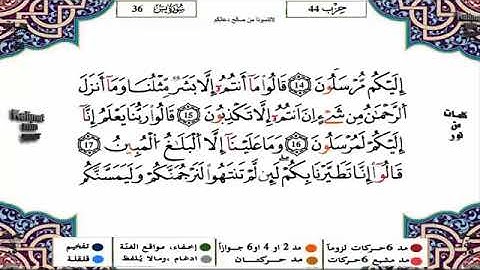 حزب 44
لاتنسونا من صالح دعائكم
سورة يس 36
إِلَيْكُم مُّرْسَلُونَ ١٤ قَالُوا مَا أَنتُمْ إِلَّا بَشَرٌ مِّثْلُنَا وَمَا أَنزَلَ
الرَّحْمَٰنُ مِن شَيْءٍ إِنْ أَنتُمْ إِلَّا تَكْذِبُونَ ١٥ قَالُوا رَبُّنَا يَعْلَمُ إِنَّا
إِلَيْكُمْ لَمُرْسَلُونَ ١٦ وَمَا عَلَيْنَا إِلَّا الْبَلَٰغُ الْمُبِينُ ١٧
قَالُوا إِنَّا تَطَيَّرْنَا بِكُمْ لَئِن لَّمْ تَنتَهُوا لَنَرْجُمَنَّكُمْ وَلَيَمَسَّنَّكُم
كلمات
من
نور
مد 6 حركات لزوماً
مد 2 او 4 او 6 جوازاً
إخفاء، مواقع الغنّة
تفخيم
مد مشبع 6 حركات
مد حركتان
ادغام، ومالا يُلفظ
قلقلة